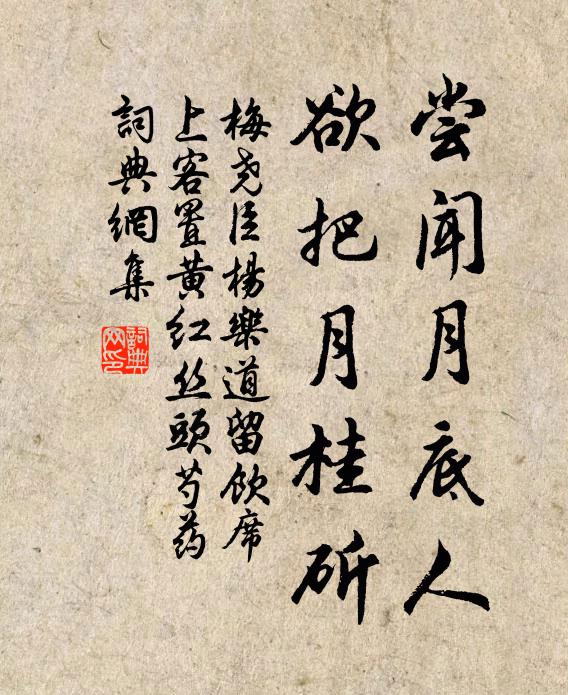 尝闻月底人
欲把月桂斫
梅尧臣楊樂道留饮席
上客置黄红丝頭芍药
詞典網集
詞典网印